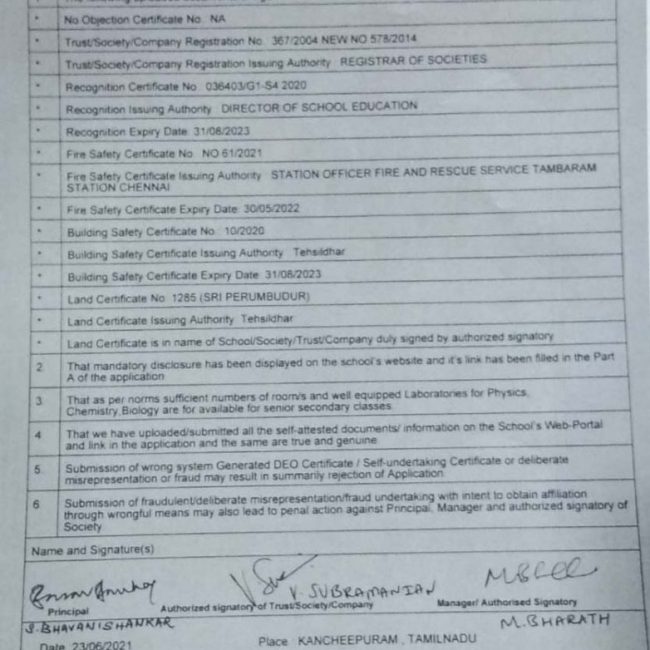 * No Objection Certificate No. NA
* Trust/Society/Company Registration No. 367/2004 NEW NO 578/2014
* Trust/Society/Company Registration Issuing Authority REGISTRAR OF SOCIETIES
* Recognition Certificate No 036403/G1-S4 2020
* Recognition Issuing Authority DIRECTOR OF SCHOOL EDUCATION
* Recognition Expiry Date 31/08/2023
* Fire Safety Certificate No NO 61/2021
* Fire Safety Certificate Issuing Authority STATION OFFICER FIRE AND RESCUE SERVICE TAMBARAM
STATION CHENNAI
* Fire Safety Certificate Expiry Date 30/05/2022
* Building Safety Certificate No 10/2020
* Building Safety Certificate Issuing Authority Tehsildhar
* Building Safety Certificate Expiry Date 31/08/2023
* Land Certificate No 1285 (SRI PERUMBUDUR)
* Land Certificate Issuing Authority Tehsildhar
* Land Certificate is in name of School/Society/Trust/Company duly signed by authorized signatory
2 That mandatory disclosure has been displayed on the school's website and it's link has been filled in the Part
A of the application
3 That as per norms sufficient numbers of room/s and well equipped Laboratories for Physics,
Chemistry,Biology are for available for senior secondary classes
4 That we have uploaded/submitted all the self-attested documents/ information on the School's Web-Portal
and link in the application and the same are true and genuine
5 Submission of wrong system Generated DEO Certificate / Self-undertaking Certificate or deliberate
misrepresentation or fraud may result in summarily rejection of Application
6 Submission of fraudulent/deliberate misrepresentation/fraud undertaking with intent to obtain affiliation
through wrongful means may also lead to penal action against Principal, Manager and authorized signatory of
Society
Name and Signature(s)
V. SUBRAMANIAN
Principal Authorized signatory of Trust/Society/Company Manager/ Authorised Signatory
S. BHAVANISHANKAR M. BHARATH
Date 23/06/2021 Place : KANCHEEPURAM , TAMILNADU